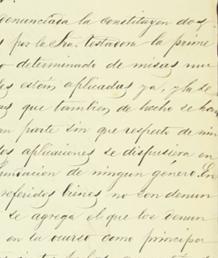 denunciada la constituyen dos
s por la Sra. testadora la prime
o determinado de misas nue
los están aplicadas ya, y la se
as que también de hecho se han
en parte sin que respecto de nin
los aplicaciones se dispusiera en
limitación de ningún género. En
referidos bienes no son denun
se agrega el que los denun
en su curso como principia